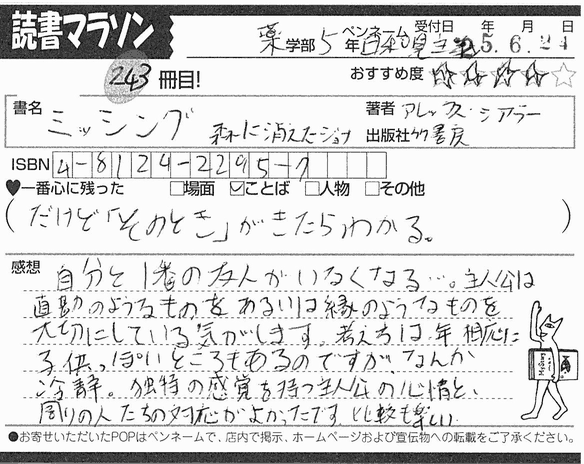 読書マラソン
243冊目!
薬学部5年 ペンネーム 受付日 年 月 日
5.6.24
おすすめ度 ☆☆☆☆☆
書名 ミッシング 森に消えたジョナ
著者 アレックス・シアラー
出版社 竹書房
ISBN 4-8124-2295-7
♥一番心に残った □場面 ☑ことば □人物 □その他
(だけど「そのとき」がきたらわかる。)
感想 自分と1番の友人がいなくなる…。主人公は
直感のようなものを あるいは縁のようなものを
大切にしている気がします。考え方は年相応に
子供っぽいところもあるのですが、なんか
冷静。独特の感覚を持つ主人公の心情と、
周りの人たちの対応がよかったです。比較も楽しい
●お寄せいただいたPOPはペンネームで、店内で掲示、ホームページおよび宣伝物への転載をご了承ください。